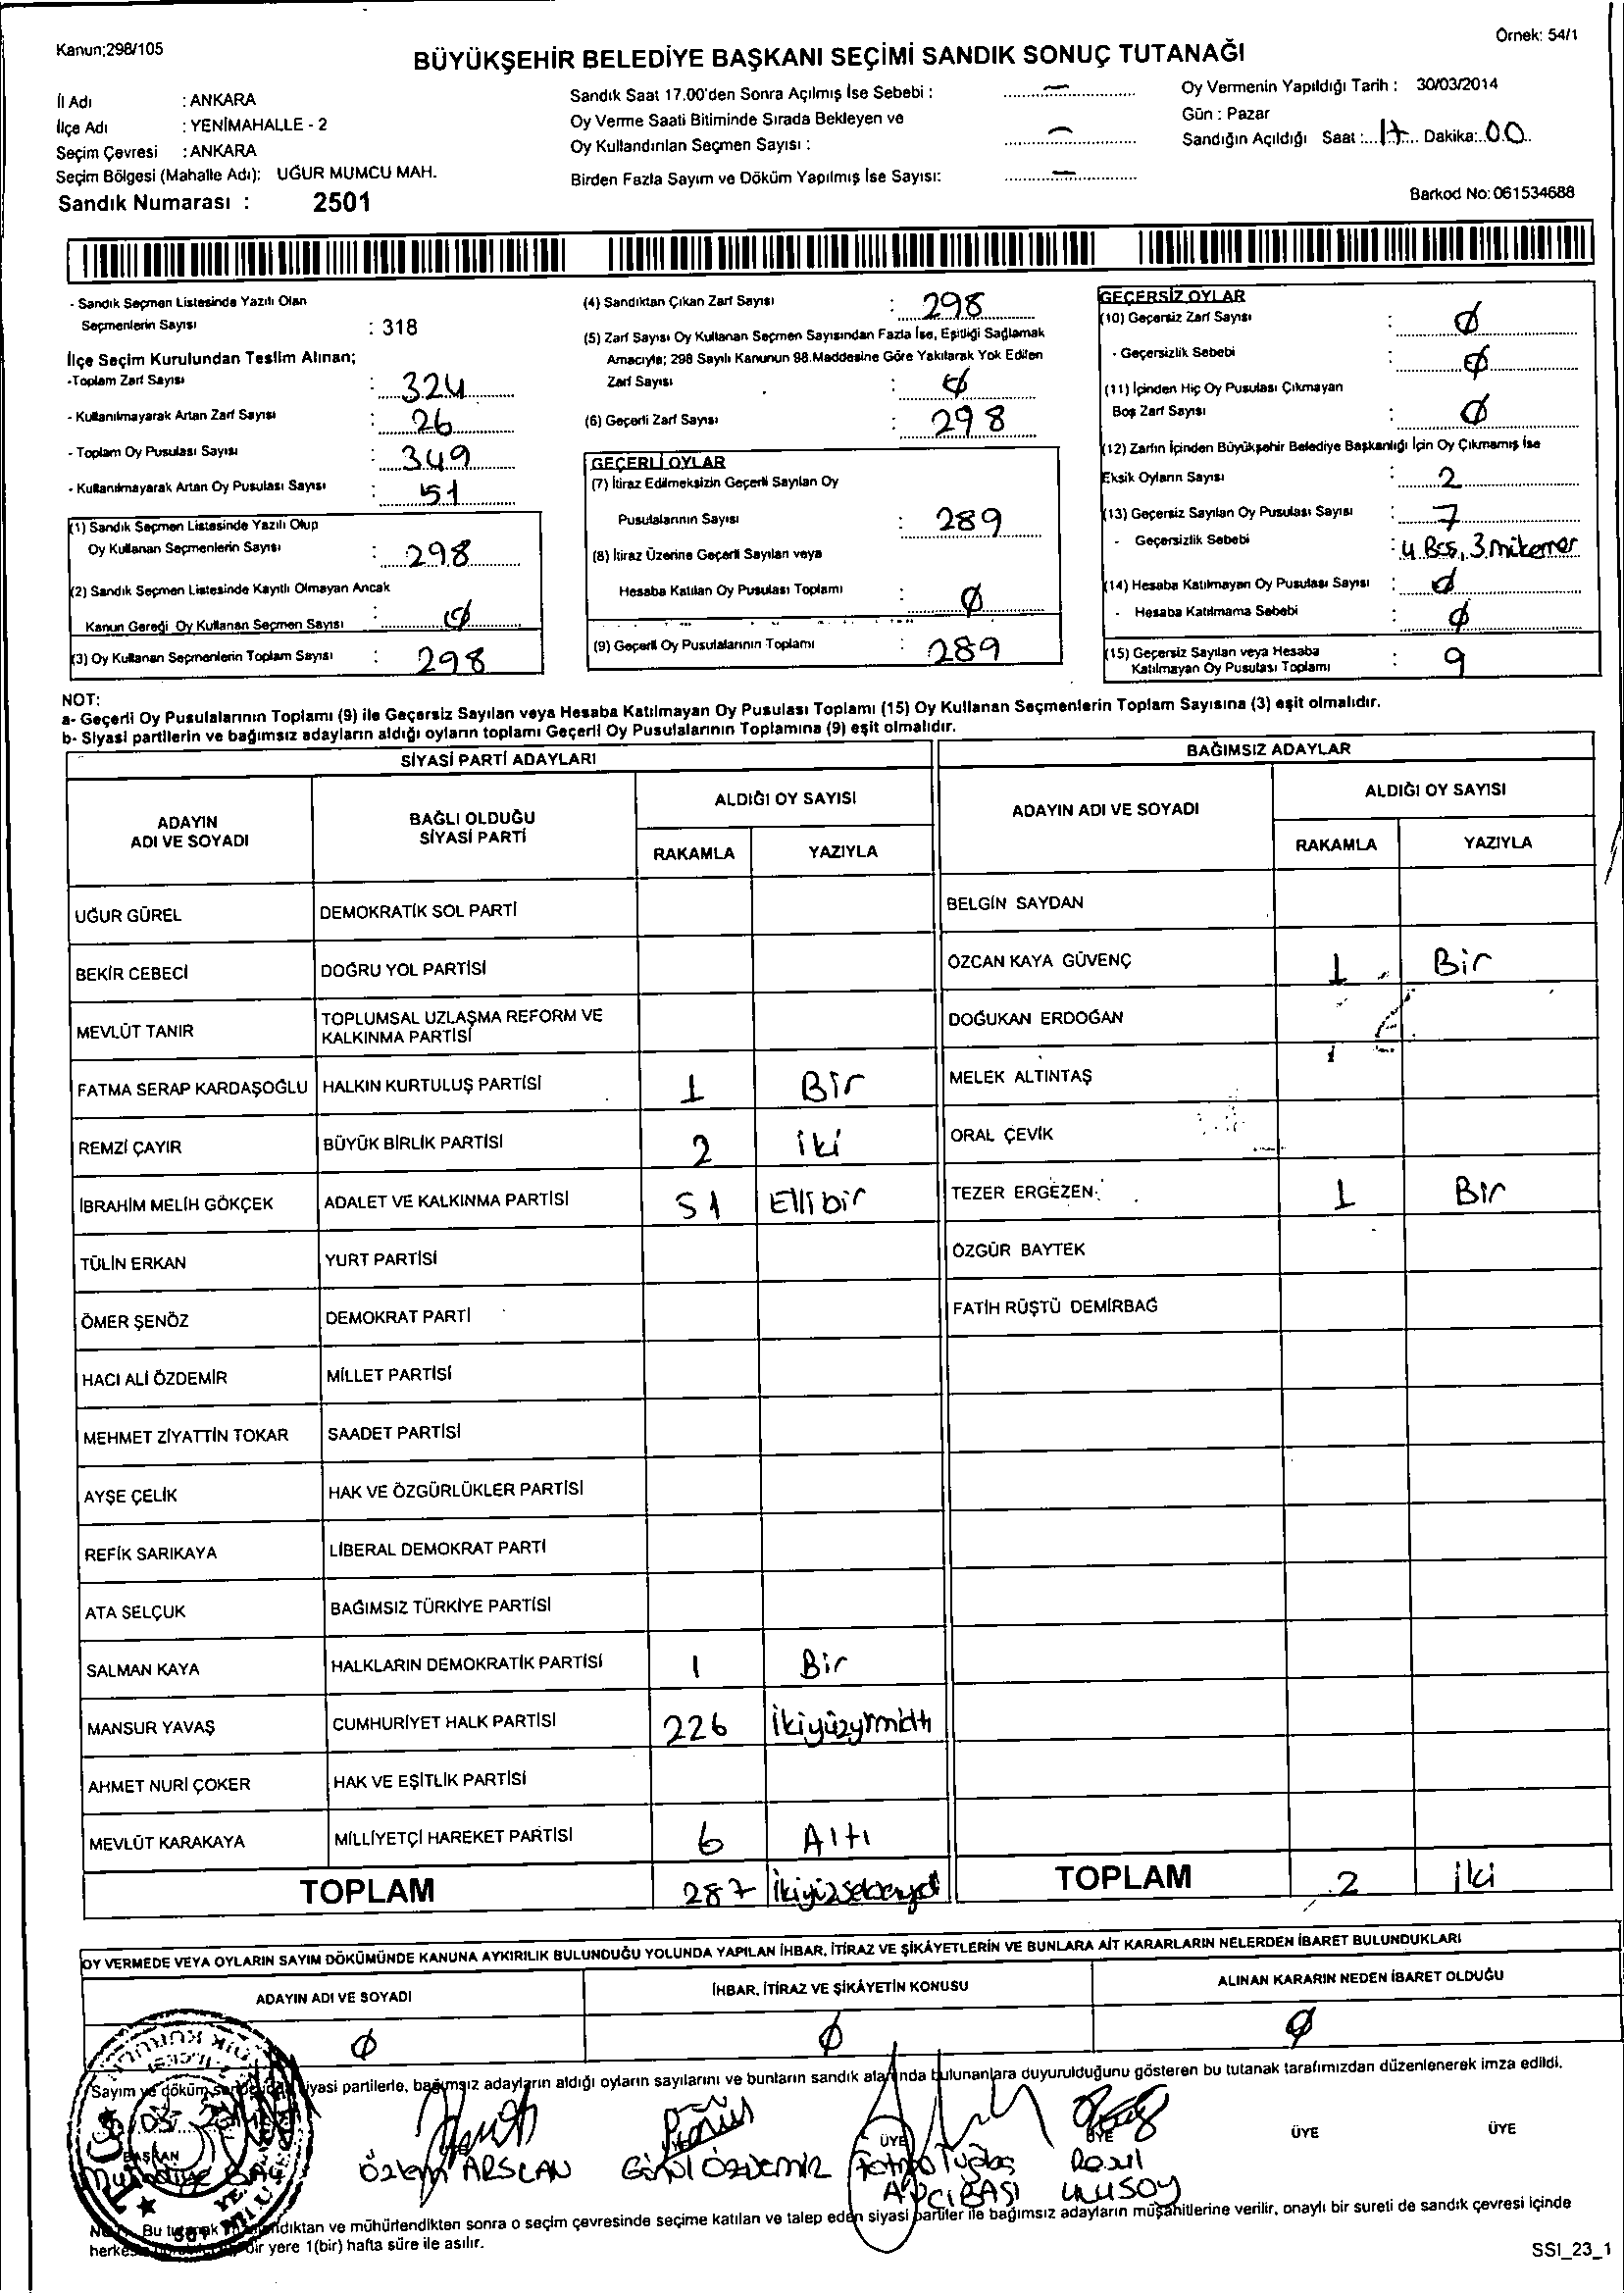 Kanun;298/105
Örnek: 54/1
BÜYÜKŞEHİR BELEDİYE BAŞKANI SEÇİMİ SANDIK SONUÇ TUTANAĞI
İl Adı : ANKARA
İlçe Adı : YENİMAHALLE - 2
Seçim Çevresi : ANKARA
Seçim Bölgesi (Mahalle Adı): UĞUR MUMCU MAH.
Sandık Numarası : 2501
Sandık Saat 17.00'den Sonra Açılmış İse Sebebi : —
Oy Verme Saati Bitiminde Sırada Bekleyen ve
Oy Kullandırılan Seçmen Sayısı : —
Birden Fazla Sayım ve Döküm Yapılmış İse Sayısı: —
Oy Vermenin Yapıldığı Tarih : 30/03/2014
Gün : Pazar
Sandığın Açıldığı Saat :....17.... Dakika:..00..
Barkod No:061534688
- Sandık Seçmen Listesinde Yazılı Olan
Seçmenlerin Sayısı : 318
İlçe Seçim Kurulundan Teslim Alınan;
-Toplam Zarf Sayısı : 324
- Kullanılmayarak Artan Zarf Sayısı : 26
- Toplam Oy Pusulası Sayısı : 349
- Kullanılmayarak Artan Oy Pusulası Sayısı : 51
(1) Sandık Seçmen Listesinde Yazılı Olup
Oy Kullanan Seçmenlerin Sayısı : 298
(2) Sandık Seçmen Listesinde Kayıtlı Olmayan Ancak
Kanun Gereği Oy Kullanan Seçmen Sayısı : Ø
(3) Oy Kullanan Seçmenlerin Toplam Sayısı : 298
(4) Sandıktan Çıkan Zarf Sayısı : 298
(5) Zarf Sayısı Oy Kullanan Seçmen Sayısından Fazla İse, Eşitliği Sağlamak
Amacıyla; 298 Sayılı Kanunun 98.Maddesine Göre Yakılarak Yok Edilen
Zarf Sayısı : Ø
(6) Geçerli Zarf Sayısı : 298
GEÇERLİ OYLAR
(7) İtiraz Edilmeksizin Geçerli Sayılan Oy
Pusulalarının Sayısı : 289
(8) İtiraz Üzerine Geçerli Sayılan veya
Hesaba Katılan Oy Pusulası Toplamı : Ø
(9) Geçerli Oy Pusulalarının Toplamı : 289
GEÇERSİZ OYLAR
(10) Geçersiz Zarf Sayısı : Ø
- Geçersizlik Sebebi : Ø
(11) İçinden Hiç Oy Pusulası Çıkmayan
Boş Zarf Sayısı : Ø
(12) Zarfın İçinden Büyükşehir Belediye Başkanlığı İçin Oy Çıkmamış İse
Eksik Oyların Sayısı : 2
(13) Geçersiz Sayılan Oy Pusulası Sayısı : 7
- Geçersizlik Sebebi : 4 Boş, 3 mükerrer
(14) Hesaba Katılmayan Oy Pusulası Sayısı : Ø
- Hesaba Katılmama Sebebi : Ø
(15) Geçersiz Sayılan veya Hesaba
Katılmayan Oy Pusulası Toplamı : 9
NOT:
a- Geçerli Oy Pusulalarının Toplamı (9) ile Geçersiz Sayılan veya Hesaba Katılmayan Oy Pusulası Toplamı (15) Oy Kullanan Seçmenlerin Toplam Sayısına (3) eşit olmalıdır.
b- Siyasi partilerin ve bağımsız adayların aldığı oyların toplamı Geçerli Oy Pusulalarının Toplamına (9) eşit olmalıdır.
SİYASİ PARTİ ADAYLARI
ADAYIN
ADI VE SOYADI
BAĞLI OLDUĞU
SİYASİ PARTİ
ALDIĞI OY SAYISI
RAKAMLA YAZIYLA
UĞUR GÜREL DEMOKRATİK SOL PARTİ
BEKİR CEBECİ DOĞRU YOL PARTİSİ
MEVLÜT TANIR TOPLUMSAL UZLAŞMA REFORM VE
KALKINMA PARTİSİ
FATMA SERAP KARDAŞOĞLU HALKIN KURTULUŞ PARTİSİ 1 Bir
REMZİ ÇAYIR BÜYÜK BİRLİK PARTİSİ 2 iki
İBRAHİM MELİH GÖKÇEK ADALET VE KALKINMA PARTİSİ 51 Elli bir
TÜLİN ERKAN YURT PARTİSİ
ÖMER ŞENÖZ DEMOKRAT PARTİ
HACI ALİ ÖZDEMİR MİLLET PARTİSİ
MEHMET ZİYATTİN TOKAR SAADET PARTİSİ
AYŞE ÇELİK HAK VE ÖZGÜRLÜKLER PARTİSİ
REFİK SARIKAYA LİBERAL DEMOKRAT PARTİ
ATA SELÇUK BAĞIMSIZ TÜRKİYE PARTİSİ
SALMAN KAYA HALKLARIN DEMOKRATİK PARTİSİ 1 Bir
MANSUR YAVAŞ CUMHURİYET HALK PARTİSİ 226
AHMET NURİ ÇOKER HAK VE EŞİTLİK PARTİSİ
MEVLÜT KARAKAYA MİLLİYETÇİ HAREKET PARTİSİ 6 Altı
TOPLAM 287
BAĞIMSIZ ADAYLAR
ADAYIN ADI VE SOYADI
ALDIĞI OY SAYISI
RAKAMLA YAZIYLA
BELGİN SAYDAN
ÖZCAN KAYA GÜVENÇ 1 Bir
DOĞUKAN ERDOĞAN
MELEK ALTINTAŞ
ORAL ÇEVİK
TEZER ERGEZEN 1 Bir
ÖZGÜR BAYTEK
FATİH RÜŞTÜ DEMİRBAĞ
TOPLAM 2 iki
OY VERMEDE VEYA OYLARIN SAYIM DÖKÜMÜNDE KANUNA AYKIRILIK BULUNDUĞU YOLUNDA YAPILAN İHBAR, İTİRAZ VE ŞİKÂYETLERİN VE BUNLARA AİT KARARLARIN NELERDEN İBARET BULUNDUKLARI
ADAYIN ADI VE SOYADI İHBAR, İTİRAZ VE ŞİKÂYETİN KONUSU ALINAN KARARIN NEDEN İBARET OLDUĞU
Ø Ø Ø
Sayım ve döküm siyasi partilerle, bağımsız adayların aldığı oyların sayılarını ve bunların sandık alanında bulunanlara duyurulduğunu gösteren bu tutanak tarafımızdan düzenlenerek imza edildi.
BAŞKAN ÜYE ÜYE ÜYE ÜYE
Özlem ARSLAN Gönül ÖZDEMİR Fatma Tuğbaş Resul
AVCIBAŞI ULUSOY
Bu tutanak ve mühürlendikten sonra o seçim çevresinde seçime katılan ve talep eden siyasi partiler ile bağımsız adayların müşahitlerine verilir, onaylı bir sureti de sandık çevresi içinde
bir yere 1(bir) hafta süre ile asılır.
SSI_23_1